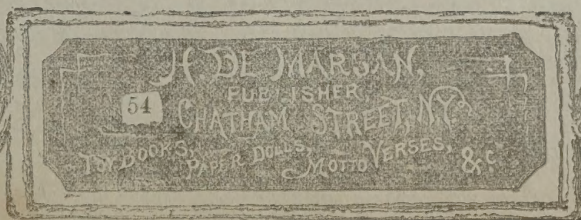 H DE MARSAN,
PUBLISHER
54 CHATHAM STREET, N.Y.
TOY BOOKS, PAPER DOLLS, MOTTO VERSES, &c